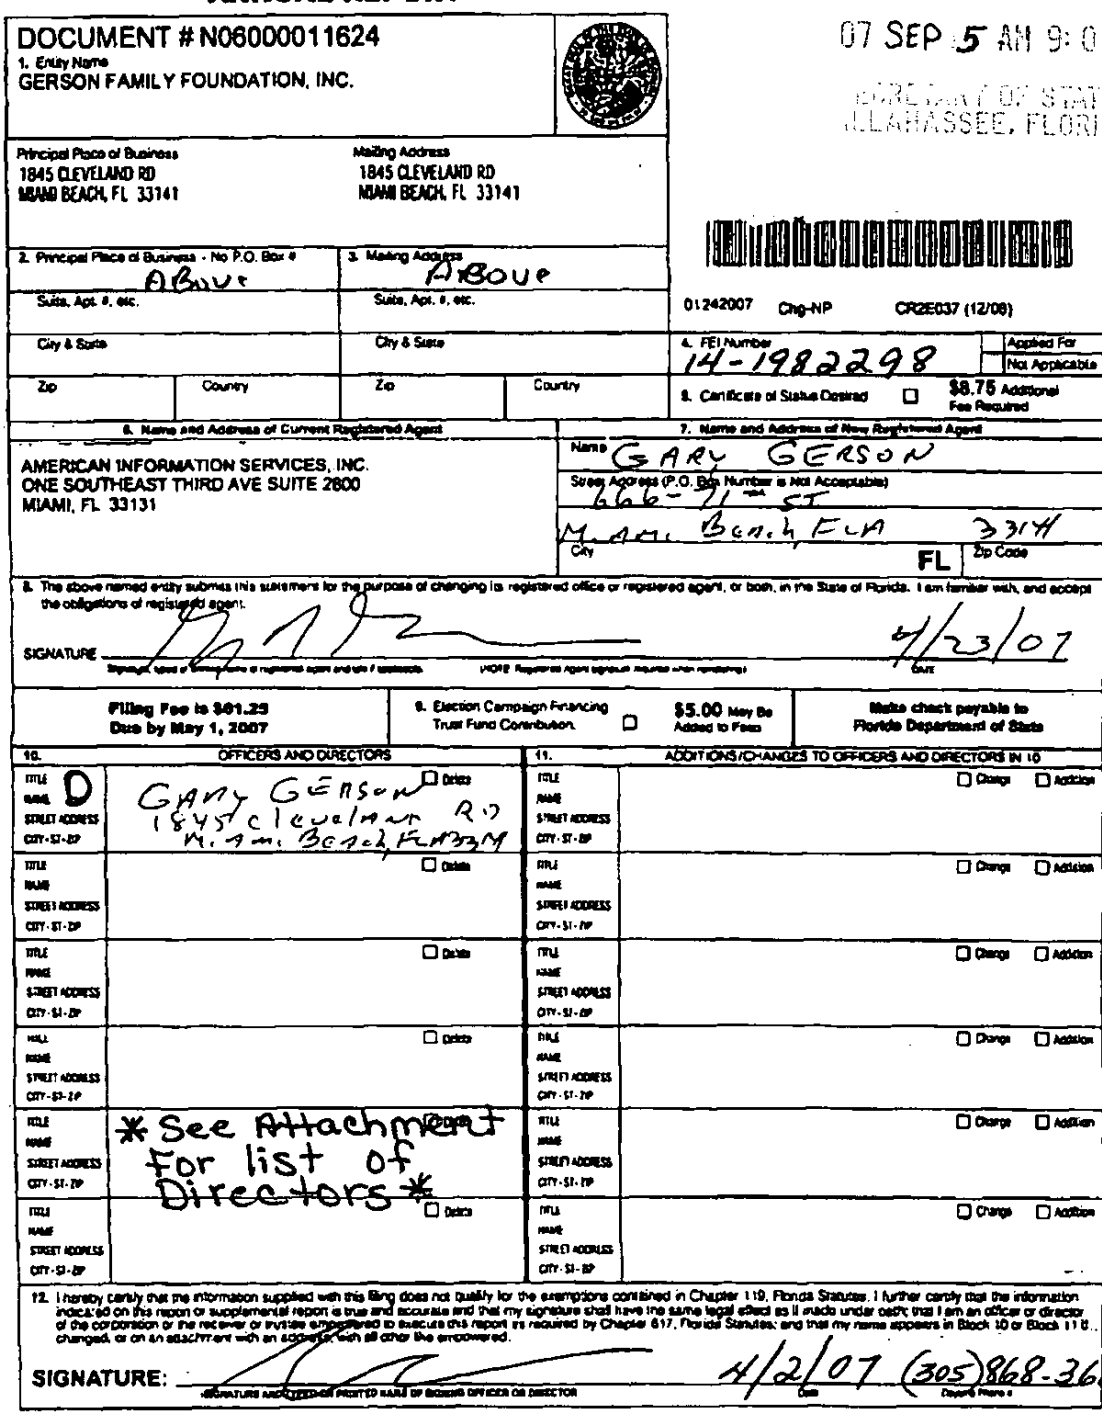 DOCUMENT # N06000011624
1. Entity Name
GERSON FAMILY FOUNDATION, INC.
07 SEP 5 AM 9: 0
OF STAT
LLAHASSEE, FLORI
Principal Place of Business
1845 CLEVELAND RD
MIAMI BEACH, FL 33141
Mailing Address
1845 CLEVELAND RD
MIAMI BEACH, FL 33141
2. Principal Place of Business - No P.O. Box #
ABove
3. Mailing Address
ABove
Suite, Apt. #, etc.
Suite, Apt. #, etc.
City & State
City & State
Zip
Country
Zip
Country
01242007 Chg-NP CR2E037 (12/06)
4. FEI Number
14-1982298
Applied For
Not Applicable
5. Certificate of Status Desired
$8.75 Additional
Fee Required
6. Name and Address of Current Registered Agent
AMERICAN INFORMATION SERVICES, INC.
ONE SOUTHEAST THIRD AVE SUITE 2800
MIAMI, FL 33131
7. Name and Address of New Registered Agent
Name GARY GERSON
Street Address (P.O. Box Number is Not Acceptable)
666-71 ST
Miami Beach, FLA 3314
City FL Zip Code
8. The above named entity submits this statement for the purpose of changing its registered office or registered agent, or both, in the State of Florida. I am familiar with, and accept
the obligations of registered agent.
SIGNATURE 4/23/07
Signature, typed or printed name of registered agent and title if applicable. (NOTE: Registered Agent signature required when reinstating) DATE
Filing Fee is $61.25
Due by May 1, 2007
9. Election Campaign Financing
Trust Fund Contribution.
$5.00 May Be
Added to Fees
Make check payable to
Florida Department of State
10. OFFICERS AND DIRECTORS
11. ADDITIONS/CHANGES TO OFFICERS AND DIRECTORS IN 10
TITLE D Delete
NAME GARY GERSON
STREET ADDRESS 1845 Cleveland RD
CITY-ST-ZIP Miami Beach, FLA
TITLE Change Addition
NAME
STREET ADDRESS
CITY-ST-ZIP
TITLE Delete
NAME
STREET ADDRESS
CITY-ST-ZIP
TITLE Change Addition
NAME
STREET ADDRESS
CITY-ST-ZIP
TITLE Delete
NAME
STREET ADDRESS
CITY-ST-ZIP
TITLE Change Addition
NAME
STREET ADDRESS
CITY-ST-ZIP
TITLE Delete
NAME
STREET ADDRESS
CITY-ST-ZIP
TITLE Change Addition
NAME
STREET ADDRESS
CITY-ST-ZIP
TITLE
NAME
STREET ADDRESS
CITY-ST-ZIP
* See Attachment
For list of
Directors *
TITLE Change Addition
NAME
STREET ADDRESS
CITY-ST-ZIP
TITLE Delete
NAME
STREET ADDRESS
CITY-ST-ZIP
TITLE Change Addition
NAME
STREET ADDRESS
CITY-ST-ZIP
12. I hereby certify that the information supplied with this filing does not qualify for the exemptions contained in Chapter 119, Florida Statutes. I further certify that the information
indicated on this report or supplemental report is true and accurate and that my signature shall have the same legal effect as if made under oath; that I am an officer or director
of the corporation or the receiver or trustee empowered to execute this report as required by Chapter 617, Florida Statutes; and that my name appears in Block 10 or Block 11 if
changed, or on an attachment with an address, with all other like empowered.
SIGNATURE: 4/2/07 (305)868-36
SIGNATURE AND TYPED OR PRINTED NAME OF SIGNING OFFICER OR DIRECTOR Date Daytime Phone #